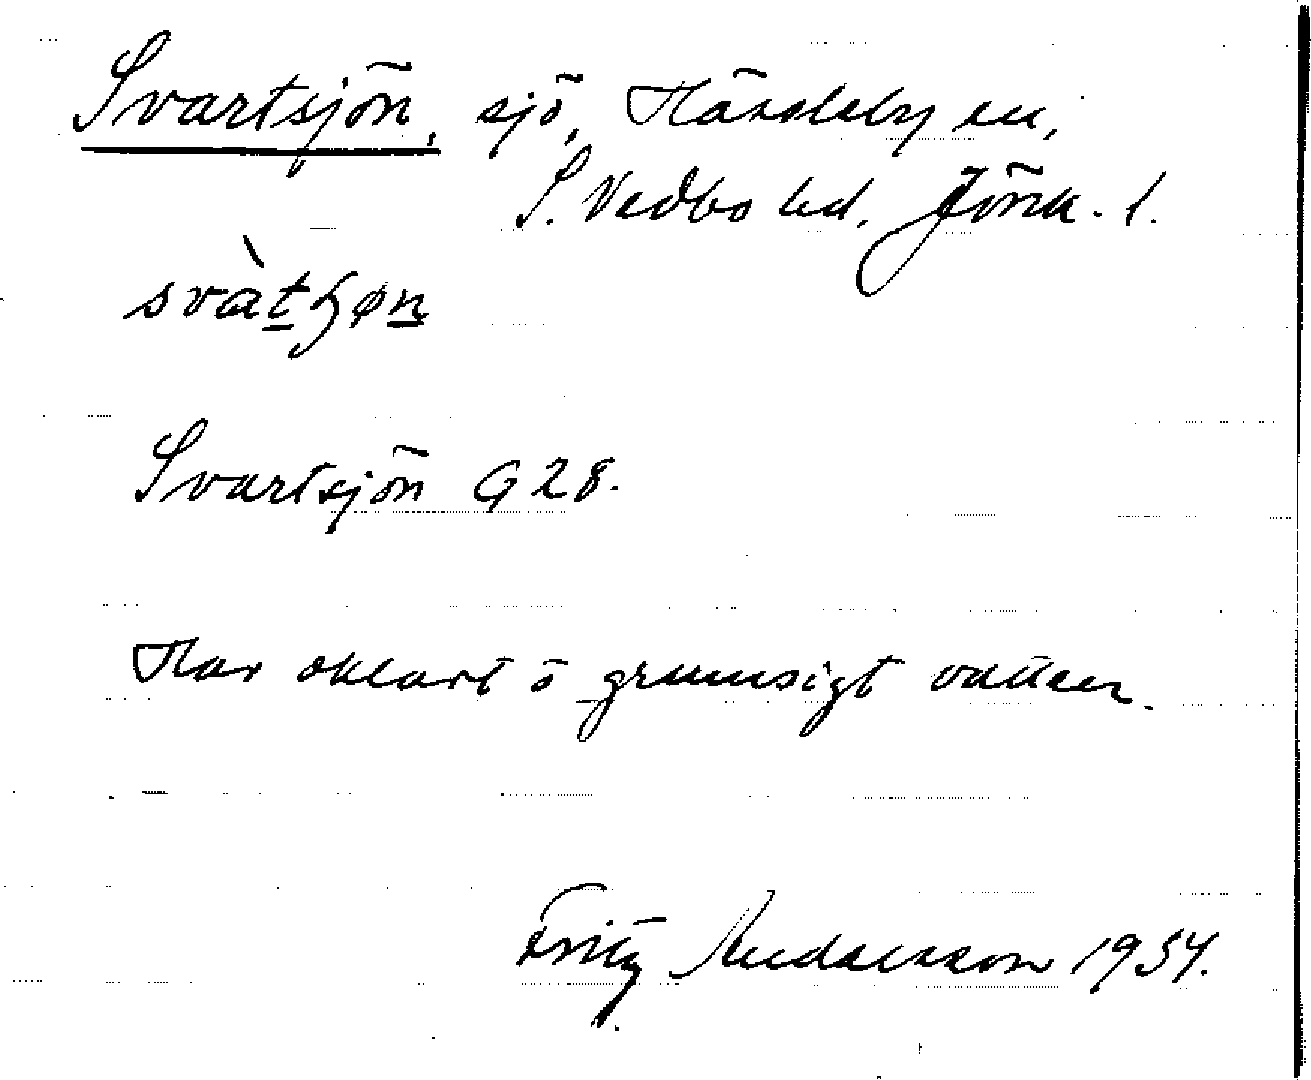 Svartsjön, sjö, Häradsby sn,
S. Vedbo hd, Jönk. l.
svàtɧøn
Svartsjön G 28.
Har oklart o grumsigt vatten.
Fritz Andersson 1934.